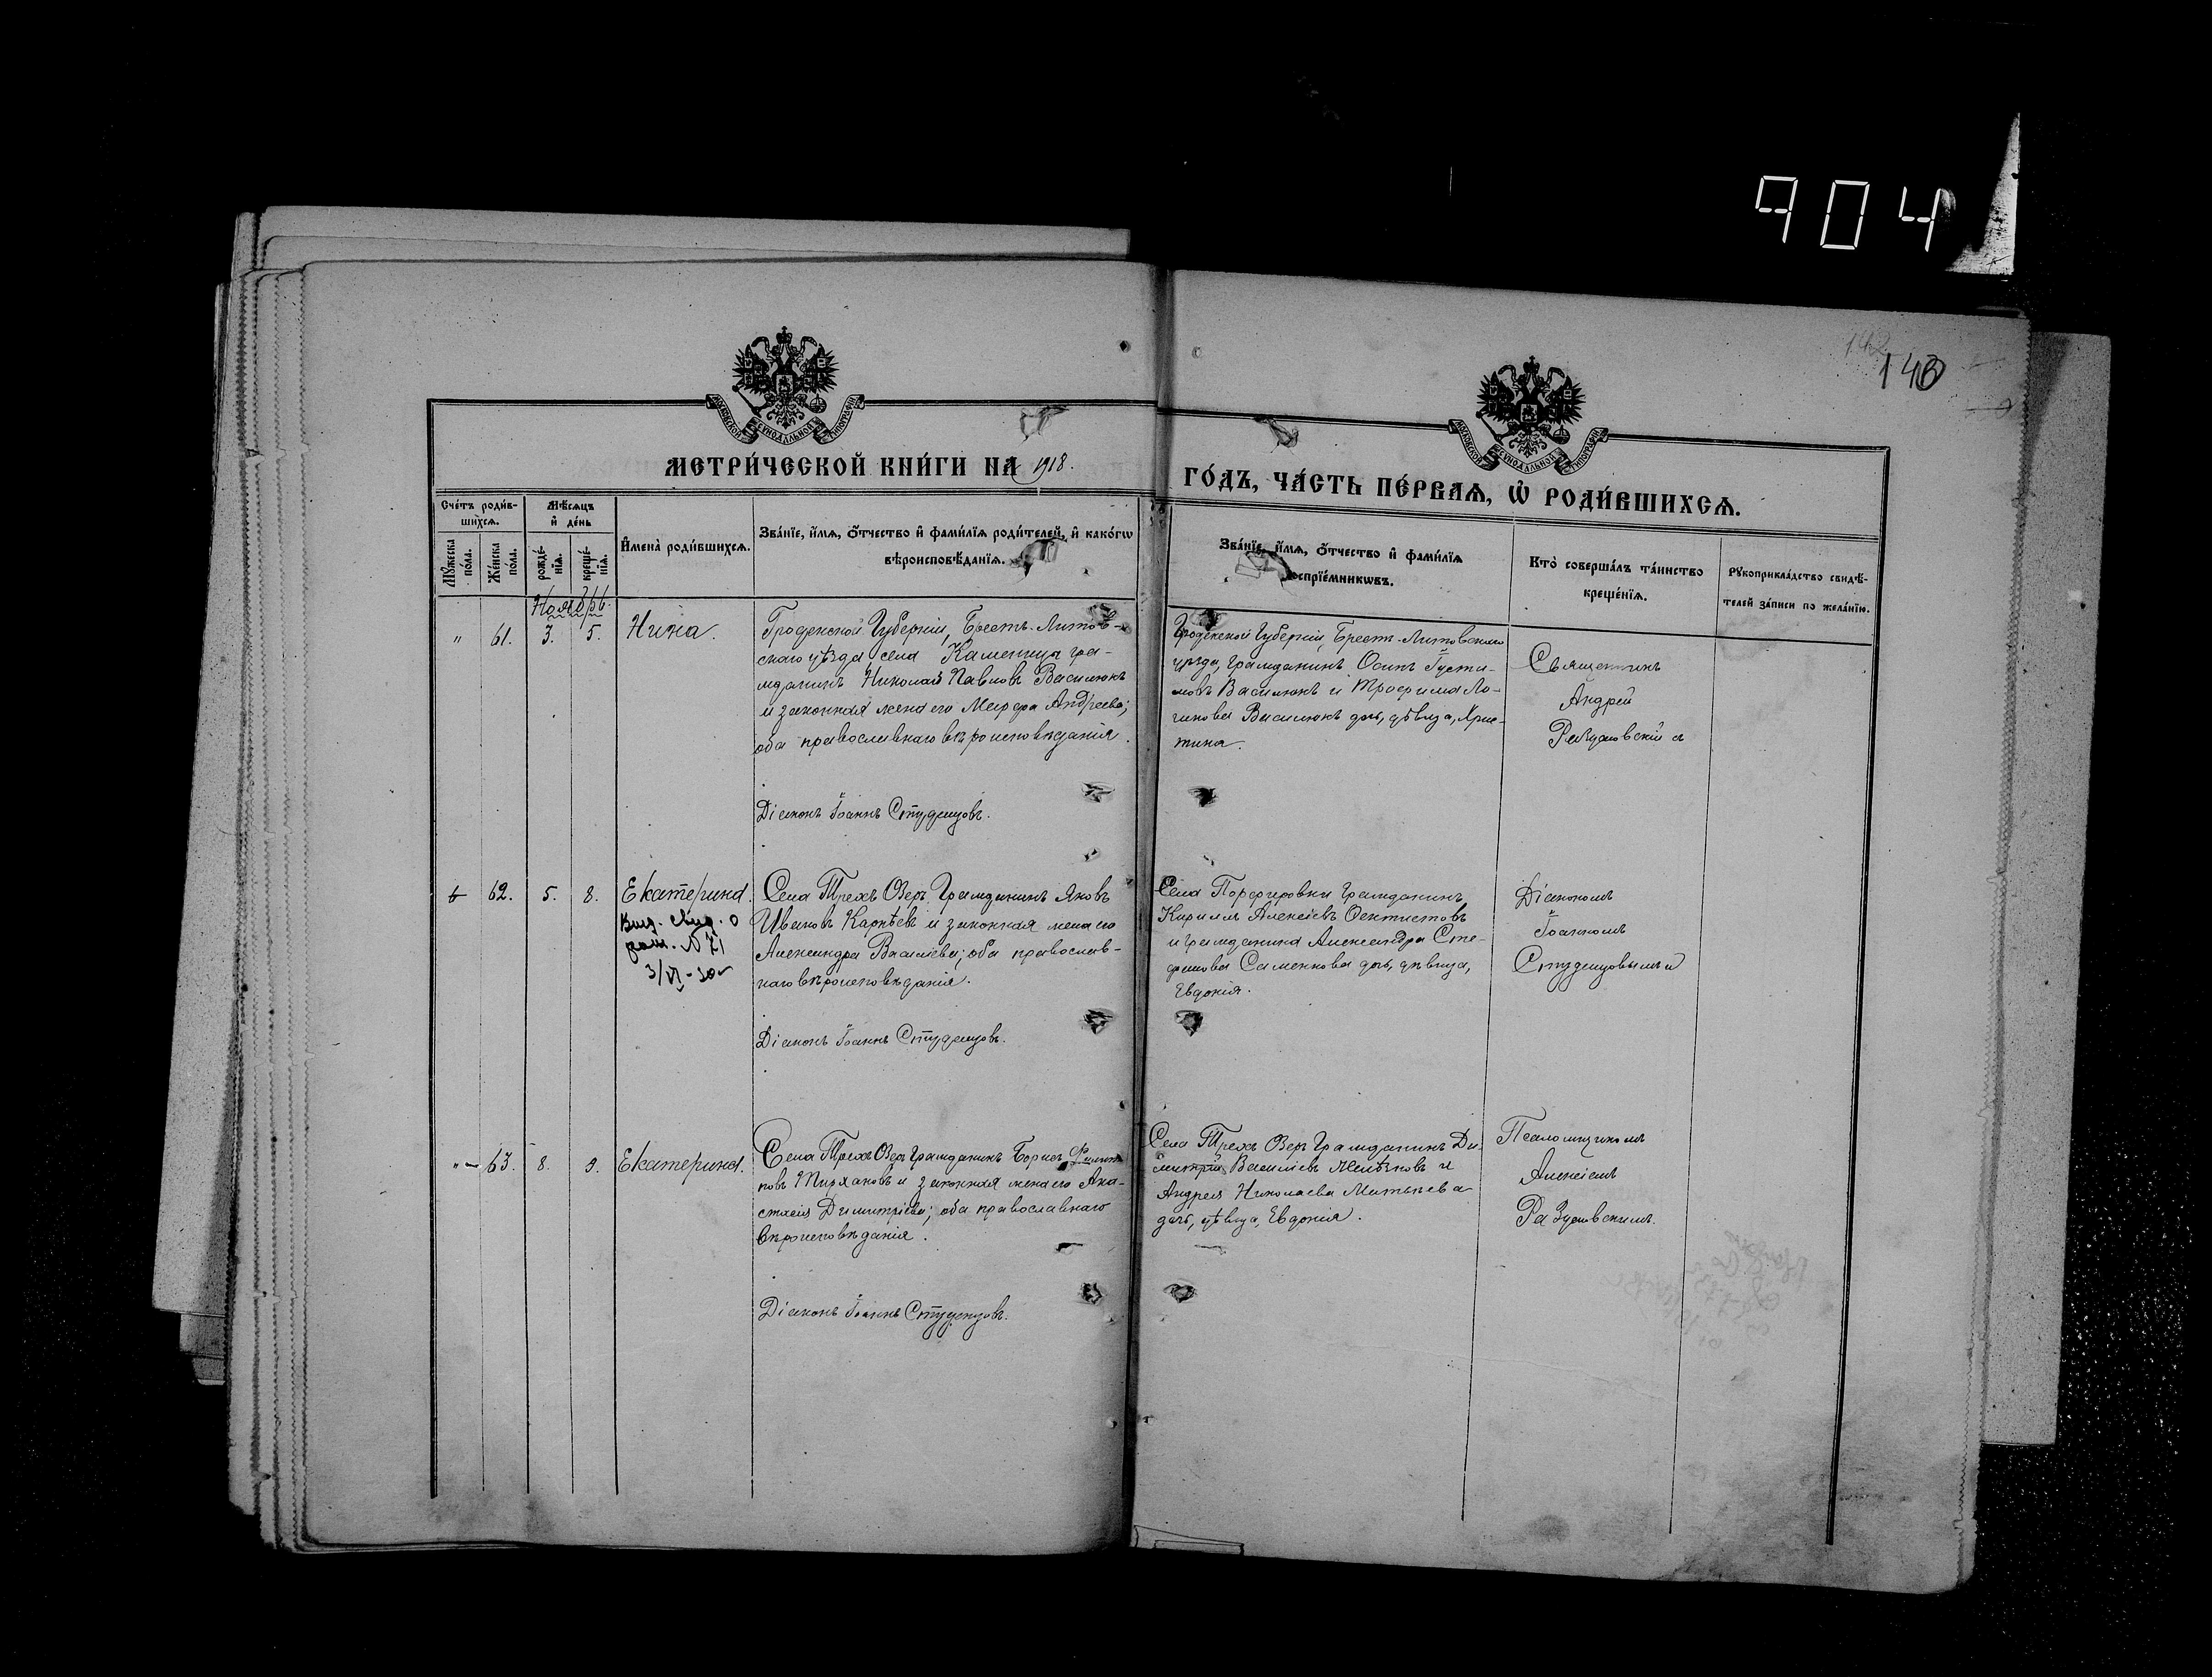 904
142
143
МОСКОВСКОЙ СѴНОДАЛЬНОЙ ТИПОГРАФІИ
МОСКОВСКОЙ СѴНОДАЛЬНОЙ ТИПОГРАФІИ
МЕТРИ́ЧЕСКОЙ КНИ́ГИ НА 1918.
ГО́ДЪ, ЧА́СТЬ ПЕ́РВАѦ, Ѡ҆ РОДИ́ВШИХСѦ.
Сче́тъ роди́в-
шихсѧ.
Мѣ́сѧцъ
и҆ де́нь
Мꙋ́жеска
по́ла.
Же́нска
по́ла.
рожде́-
нїѧ.
креще́-
нїѧ.
И҆мена̀ роди́вшихсѧ.
Зва́нїе, и҆́мѧ, ѻ҆́тчество и҆ фами́лїѧ роди́телей, и҆ како́гѡ
вѣроисповѣ́данїѧ.
Зва́нїе, и҆́мѧ, ѻ҆́тчество и҆ фами́лїѧ
воспрїе́мникѡвъ.
Кто̀ соверша́лъ та́инство
креще́нїѧ.
Рꙋкоприкла́дство свидѣ́-
телей за́писи по жела́нїю.
Ноябрь.
" 61. 3. 5. Нина.
Гродненской Губерніи, Брестъ-Литов-
скаго уѣзда села Каменица гра-
жданинъ Николай Павловъ Василюкъ
и законная жена его Марфа Андреева;
оба православнаго вѣроисповѣданія.
Діаконъ Іоаннъ Студенцовъ.
Гродненской Губерніи, Брестъ-Литовскаго
уѣзда, гражданинъ Осипъ Іусти-
новъ Василюкъ и Трофима Ло-
гинова Василюкъ дочь, дѣвица, Хрис-
тина.
Священникъ
Андрей
Разумовскій съ
62. 5. 8. Екатерина.
Выд. свид. о
рожд. №71
3/VI-30г
Села Трехъ Озеръ Гражданинъ Яковъ
Ивановъ Карпѣевъ и законная жена его
Александра Васильева; оба православ-
наго вѣроисповѣданія.
Діаконъ Іоаннъ Студенцовъ.
Села Порфировки Гражданинъ
Кириллъ Алексѣевъ Феоктистовъ
и гражданина Александра Сте-
фанова Саменкова дочь, дѣвица,
Евдокія.
Діакономъ
Іоанномъ
Студенцовымъ и
" 63. 8. 9. Екатерина.
Села Трехъ Озеръ Гражданинъ Борисъ Филип-
повъ Тирхановъ и законная жена его Ана-
стасія Димитріева; оба православнаго
вѣроисповѣданія.
Діаконъ Іоаннъ Студенцовъ.
Села Трехъ Озеръ Гражданинъ Ди-
митрій Васильевъ и
Андрея Николаева Матвѣева
дочь, дѣвица, Евдокія.
Псаломщикомъ
Алексѣемъ
Разумовскимъ.